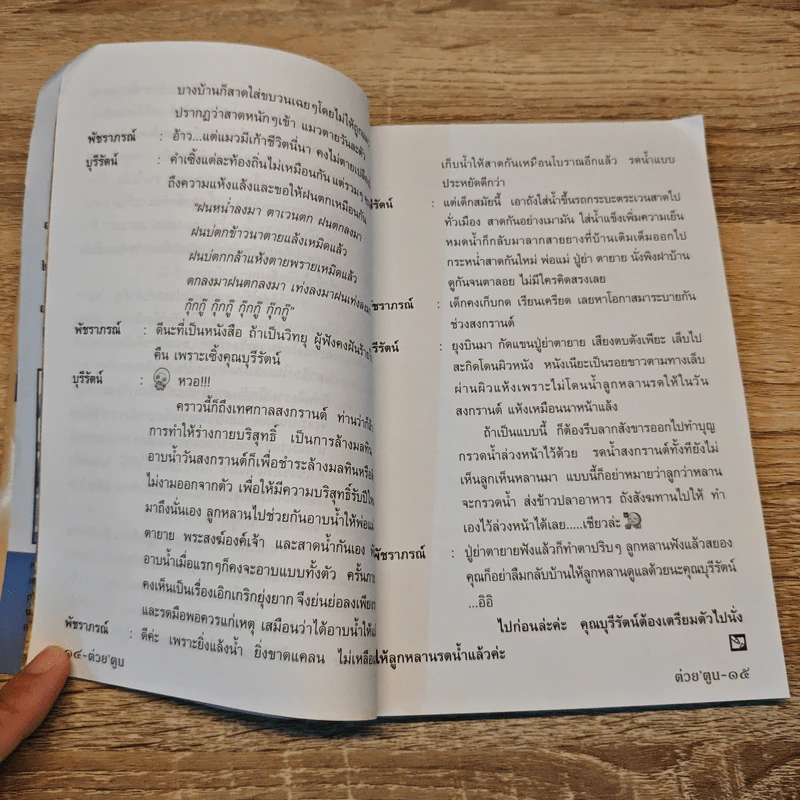 บางบ้านก็สาดใส่ขบวนเฉยๆโดยไม่ให้ถูก
ปรากฏว่าสาดหนักๆเข้า แมวตายวันละตัว
พัชราภรณ์ : อ้าว...แต่แมวมีเก้าชีวิตนี่นา คงไม่ตาย
บุรีรัตน์ : คำเซิ้งแต่ละท้องถิ่นไม่เหมือนกัน แต่รวมๆ
ถึงความแห้งแล้งและขอให้ฝนตกเหมือนกัน
"ฝนหน่ำลงมา ตาเวนตก ฝนตกลงมา
ฝนบ่ตกข้าวนาตายแล้งเหมิดแล้ว
ฝนบ่ตกกล้าแห้งตายพรายเหมิดแล้ว
ตกลงมาฝนตกลงมา เท่งลงมาฝนเท่งลงมา
กุ๊กกู๊ กุ๊กกู๊ กุ๊กกู๊ กุ๊กกู๊"
พัชราภรณ์ : ดีนะที่เป็นหนังสือ ถ้าเป็นวิทยุ ผู้ฟังคงฝันร้าย
คืน เพราะเซิ้งคุณบุรีรัตน์
บุรีรัตน์ : หวอ!!!
คราวนี้ก็ถึงเทศกาลสงกรานต์ ท่านว่าก็
การทำให้ร่างกายบริสุทธิ์ เป็นการล้างมลทิน
อาบน้ำวันสงกรานต์ก็เพื่อชำระล้างมลทินหรือ
ไม่งามออกจากตัว เพื่อให้มีความบริสุทธิ์รับปี
มาถึงนั่นเอง ลูกหลานไปช่วยกันอาบน้ำให้พ่อแม่
ตายาย พระสงฆ์องค์เจ้า และสาดน้ำกันเอง
อาบน้ำเมื่อแรกๆก็คงจะอาบแบบทั้งตัว ครั้น
คงเห็นเป็นเรื่องเอิกเกริกยุ่งยาก จึงย่นย่อลงเพียง
และรดมือพอควรแก่เหตุ เสมือนว่าได้อาบน้ำให้
พัชราภรณ์ : ดีค่ะ เพราะยิ่งแล้งน้ำ ยิ่งขาดแคลน ไม่เหลือ
๑๔-ต่วย'ตูน
เก็บน้ำให้สาดกันเหมือนโบราณอีกแล้ว รดน้ำแบบ
ประหยัดดีกว่า
รีรัตน์ : แต่เด็กสมัยนี้ เอาถังใส่น้ำขึ้นรถกระบะตระเวนสาดไป
ทั่วเมือง สาดกันอย่างเมามัน ใส่น้ำแข็งเพิ่มความเย็น
หมดน้ำก็กลับมาลากสายยางที่บ้านเติมเต็มออกไป
กระหน่ำสาดกันใหม่ พ่อแม่ ปู่ย่า ตายาย นั่งพิงฝาบ้าน
ดูกันจนตาลอย ไม่มีใครคิดสรงเลย
ชราภรณ์ : เด็กคงเก็บกด เรียนเครียด เลยหาโอกาสมาระบายกัน
ช่วงสงกรานต์
รีรัตน์ : ยุงบินมา กัดแขนปู่ย่าตายาย เสียงตบดังเพียะ เล็บไป
สะกิดโดนผิวหนัง หนังเนียะเป็นรอยขาวตามทางเล็บ
ผ่านผิวแห้งเพราะไม่โดนน้ำลูกหลานรดให้ในวัน
สงกรานต์ แห้งเหมือนนาหน้าแล้ง
ถ้าเป็นแบบนี้ ก็ต้องรีบลากสังขารออกไปทำบุญ
กรวดน้ำล่วงหน้าไว้ด้วย รดน้ำสงกรานต์ทั้งทียังไม่
เห็นลูกเห็นหลานมา แบบนี้ก็อย่าหมายว่าลูกว่าหลาน
จะกรวดน้ำ ส่งข้าวปลาอาหาร ถังสังฆทานไปให้ ทำ
เองไว้ล่วงหน้าได้เลย.....เชียวล่ะ
พัชราภรณ์ : ปู่ย่าตายายฟังแล้วก็ทำตาปริบๆ ลูกหลานฟังแล้วสยอง
คุณก็อย่าลืมกลับบ้านให้ลูกหลานดูแลด้วยนะคุณบุรีรัตน์
...อิอิ
ไปก่อนล่ะค่ะ คุณบุรีรัตน์ต้องเตรียมตัวไปนั่ง
ให้ลูกหลานรดน้ำแล้วค่ะ
ต่วย'ตูน-๑๕